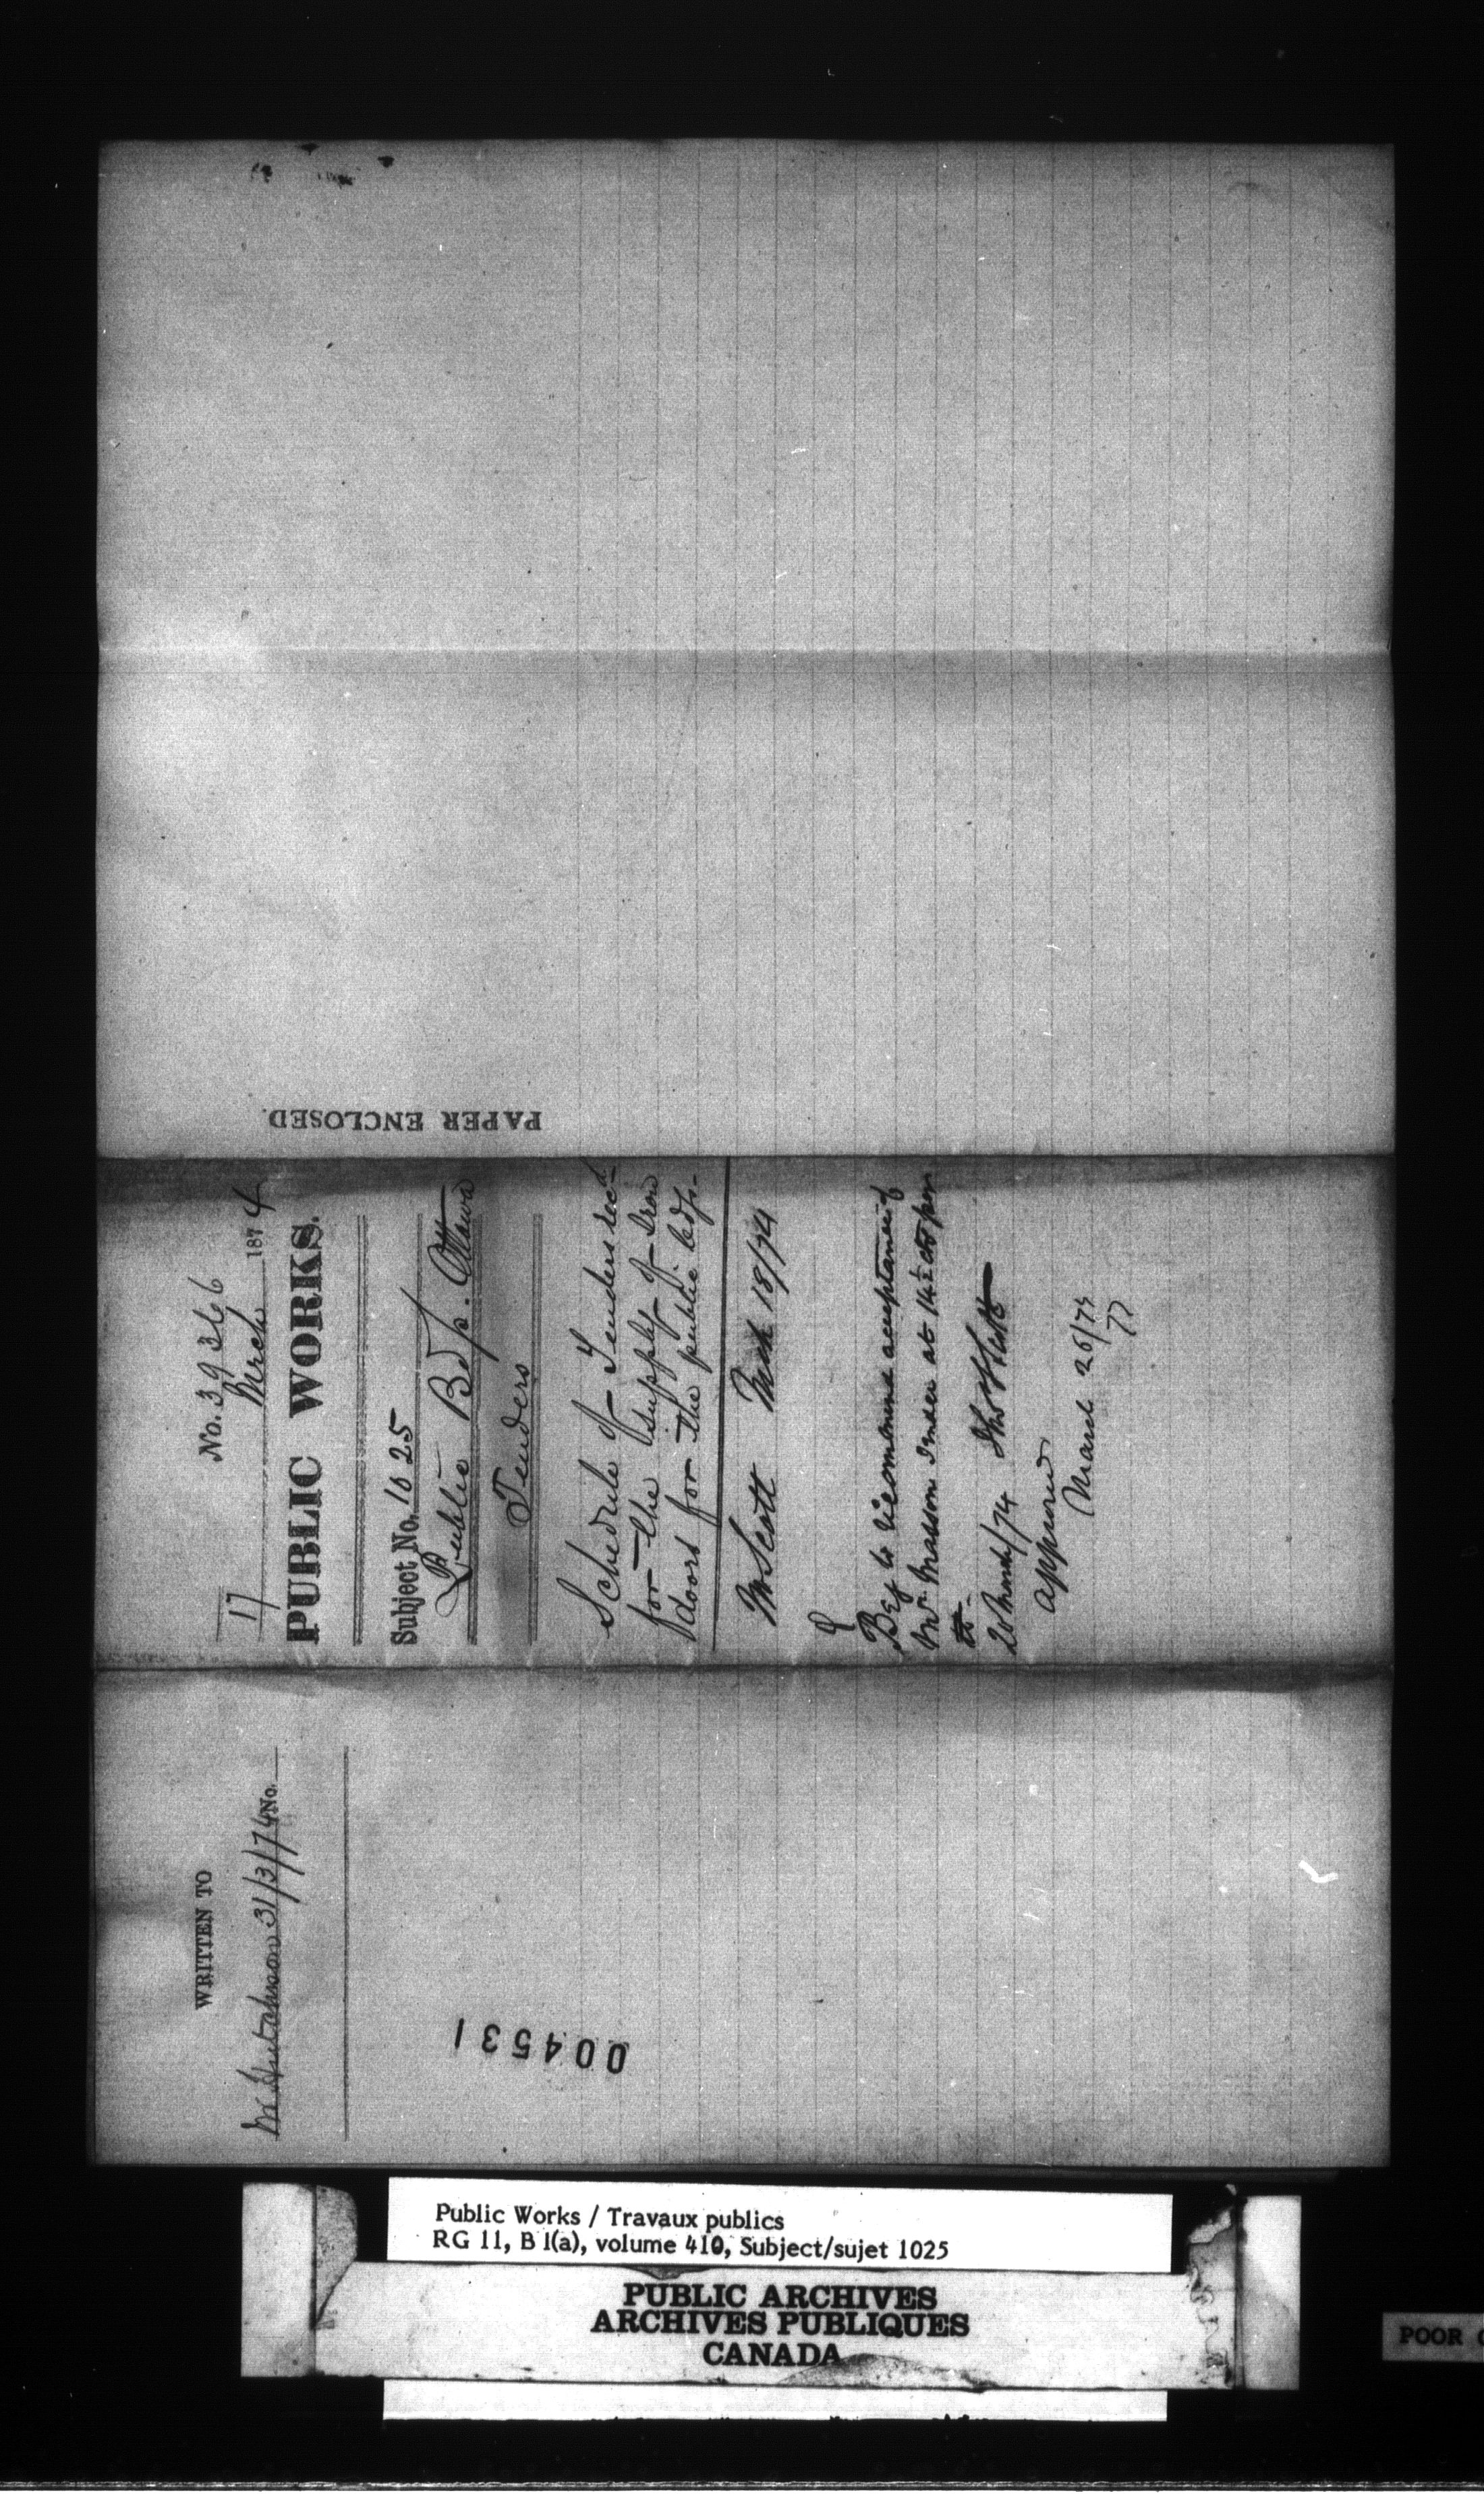 No. 39366
17 March 1874
PUBLIC WORKS.
Subject No. 1025
Public Bdgs. Ottawa
Tenders
Schedule of Tenders recd
for the supply of Iron
doors for the public bdgs.
Mr Scott Mch 18/74
Beg to recommend acceptance of
Mr. Masson Tender at 14½ cts per
lb.
20 March/74
Approved
March 26/74
PAPER ENCLOSED.
WRITTEN TO
Mr Hutchison 31/3/74 No.
004531
Public Works / Travaux publics
RG 11, B 1(a), volume 410, Subject/sujet 1025
PUBLIC ARCHIVES
ARCHIVES PUBLIQUES
CANADA
POOR